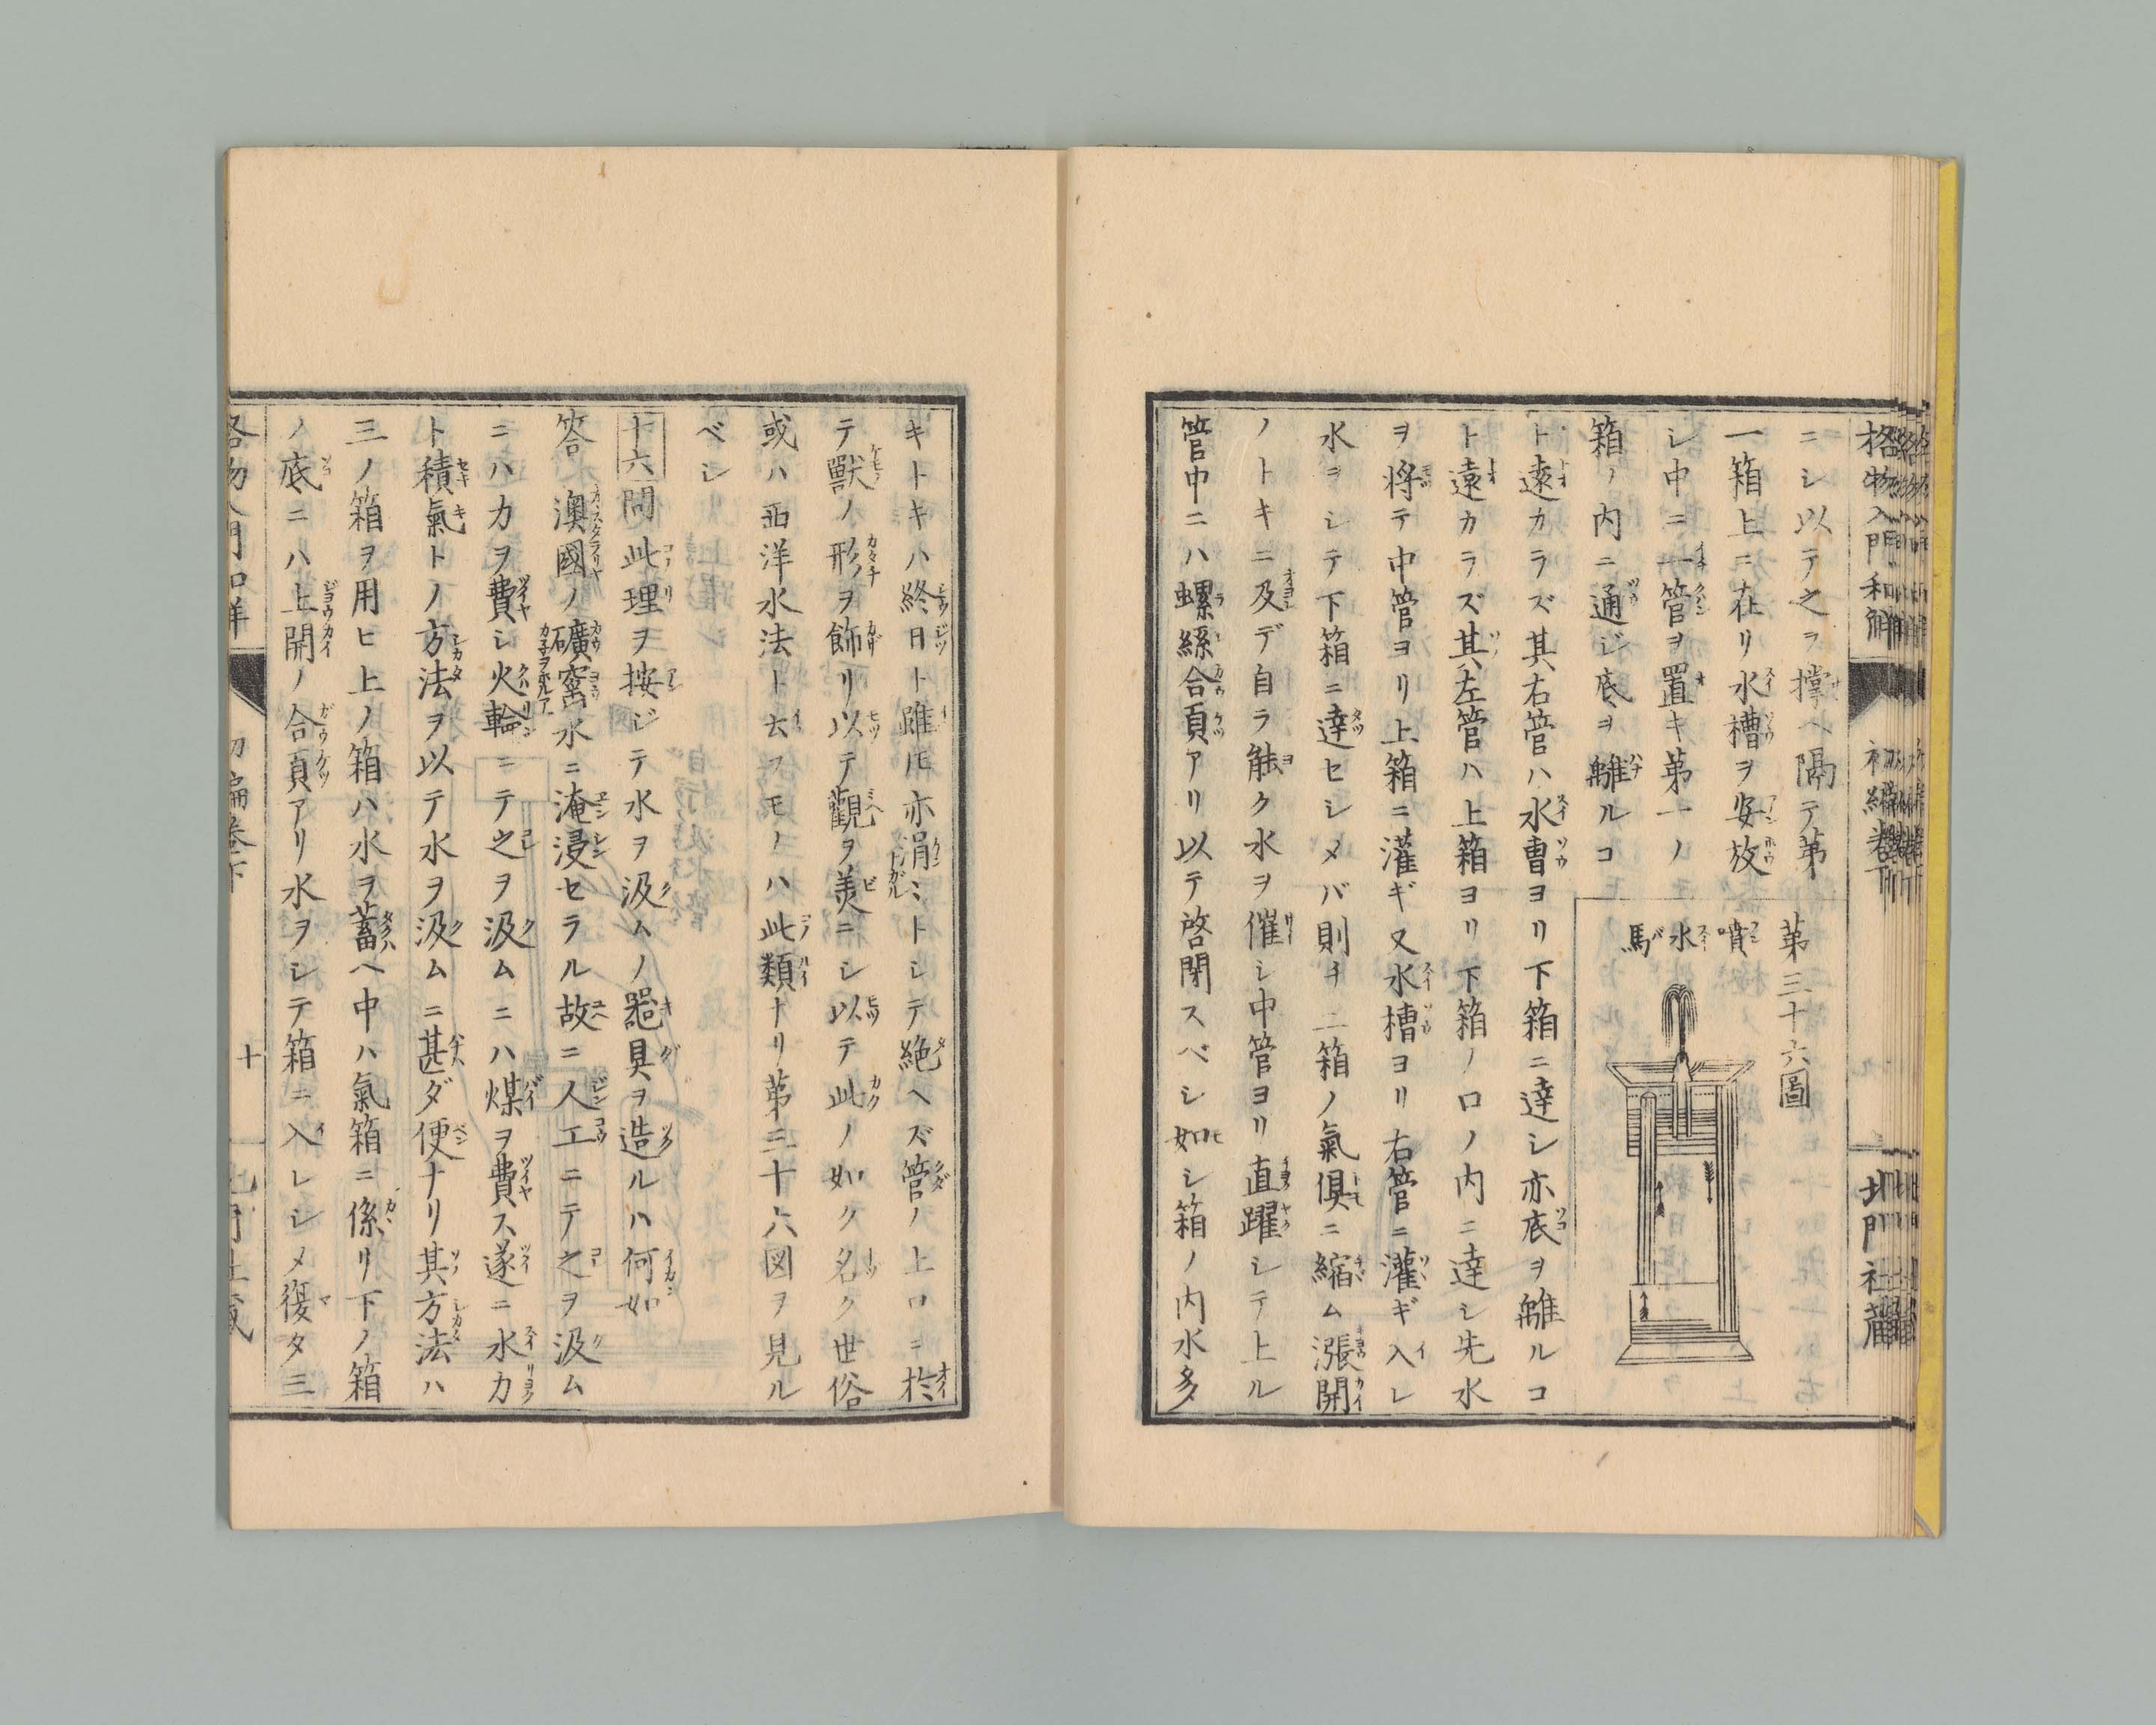 格物入門和解 初編卷下 北門社蔵
ニシ以テ之ヲ撐ヘ隔テ第
一箱上ニ在リ水槽ヲ安放
シ中ニ一管ヲ置キ第一ノ
箱ノ内ニ通ジ底ヲ離ルコ
第三十六圖
噴水馬
ト遠カラズ其右管ハ水曹ヨリ下箱ニ達シ亦底ヲ離ルコ
ト遠カラズ其左管ハ上箱ヨリ下箱ノ口ノ内ニ達シ先水
ヲ将テ中管ヨリ上箱ニ灌ギ又水槽ヨリ右管ニ灌ギ入レ
水ヲシテ下箱ニ達セシメバ則チ二箱ノ氣倶ニ縮ム漲開
ノトキニ及デ自ラ能ク水ヲ催シ中管ヨリ直躍シテ上ル
管中ニハ螺絲合頁アリ以テ啓閉スベシ如シ箱ノ内水多
キトキハ終日ト雖𪜈亦涓ミトシテ絶ヘズ管ノ上口ニ於
テ獸ノ形ヲ飾リ以テ觀ヲ美ニシ以テ此ノ如ク名ク世俗
或ハ西洋水法ト云フモノハ此類ナリ第三十六図ヲ見ル
ベシ
十六問 此理ヲ按ジテ水ヲ汲ムノ噐具ヲ造ルハ何如
答 澳國ノ礦窰水ニ淹浸セラル故ニ人工ニテ之ヲ汲ム
ニハカヲ費シ火輪ニテ之ヲ汲ムニハ煤ヲ費ス遂ニ水力
ト積氣トノ方法ヲ以テ水ヲ汲ムニ甚ダ便ナリ其方法ハ
三ノ箱ヲ用ヒ上ノ箱ハ水ヲ蓄ヘ中ハ氣箱ニ係リ下ノ箱
ノ底ニハ上開ノ合頁アリ水ヲシテ箱ニ入レシメ復タ三
格物入門和解 初編卷下 十 北門社蔵